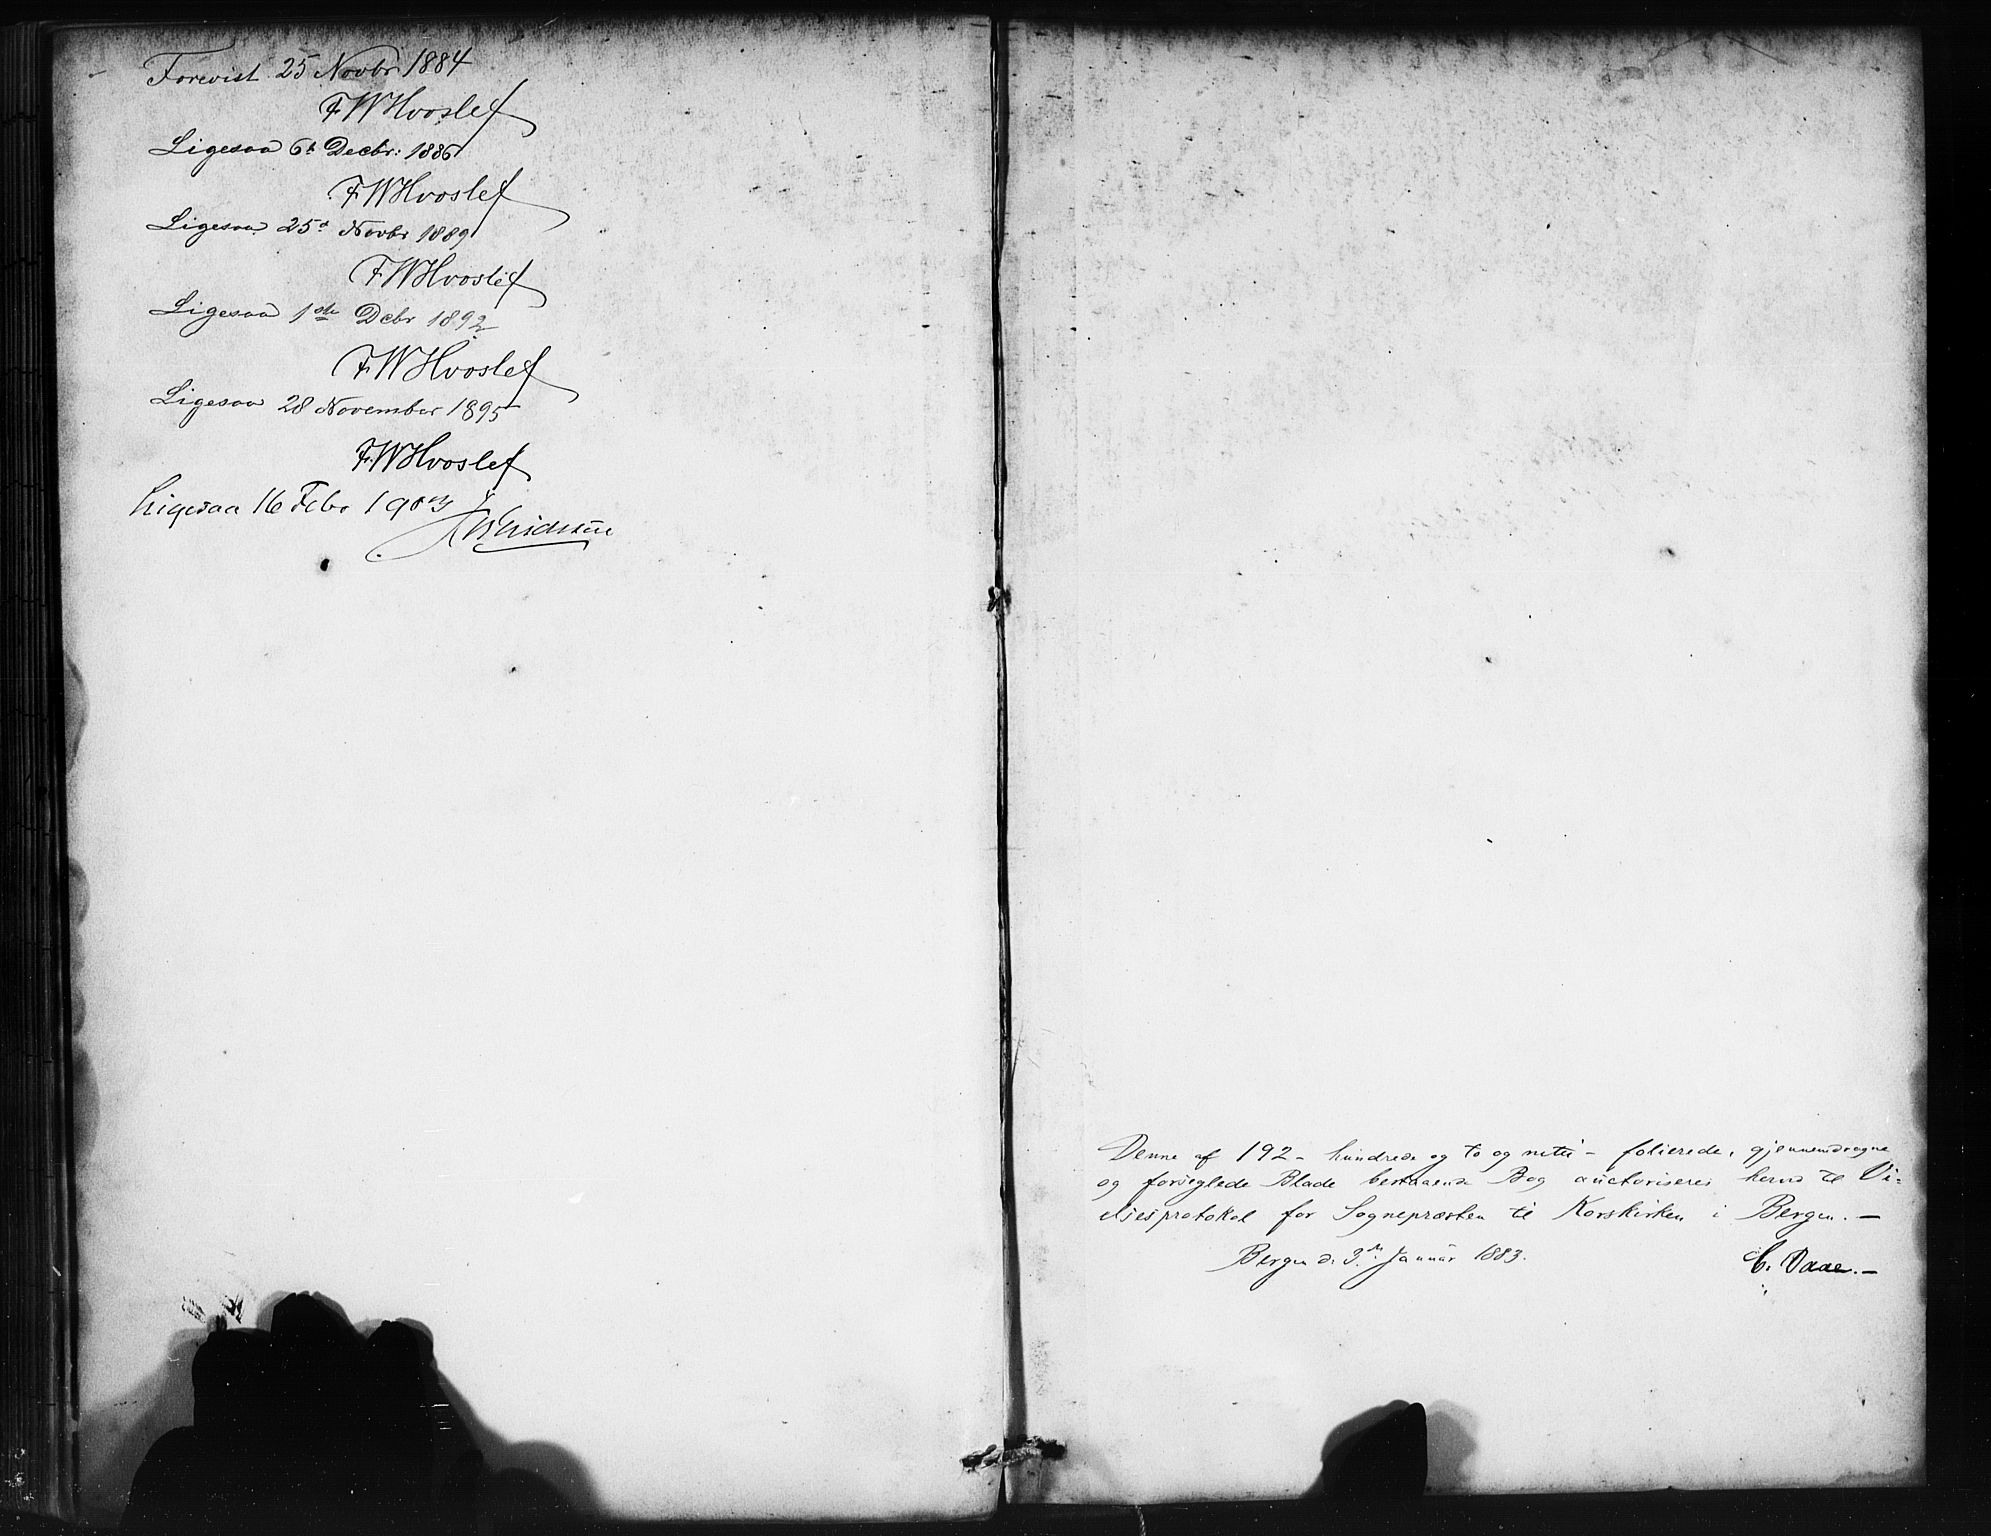 Forevist 25 Novbr 1884
FWHvoslef
Ligesaa 6t Decbr: 1886
FWHvoslef
Ligesaa 25d Novbr 1889
FWHvoslef
Ligesaa 1ste Dcbr 1892
FWHvoslef
Ligesaa 28 November 1895
FWHvoslef
Ligesaa 16 Febr 1903
Denne af 192 - hundrede og to og nitti - folierede, gjennemdragne
og forseglede Blade bestaaende Bog auctoriseres herved til Vi-
elsesprotokol for Sognepræsten til Korskirken i Bergen. —
Bergen d. 3die Januar 1883.
C. Daae. —